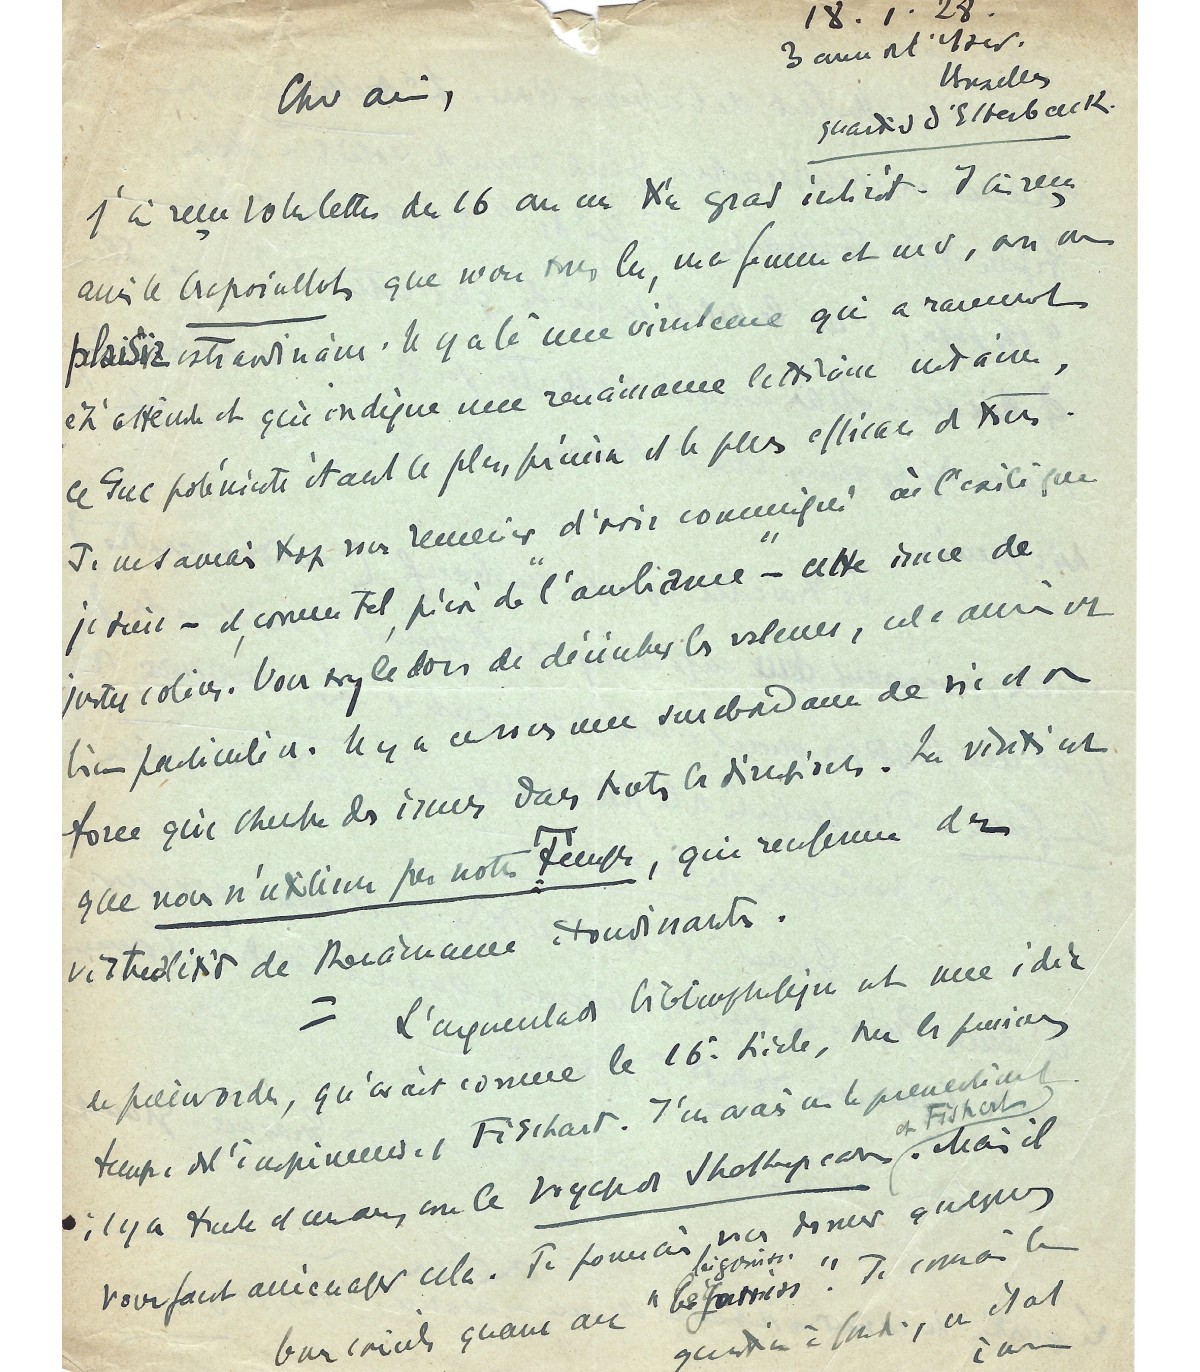 18. 1. 28.
3 avenue de l'Yser.
Bruxelles
quartier d'Etterbeeck.
Cher ami,
J'ai reçu votre lettre du 16 avec un très grand intérêt. J'ai reçu
aussi le Crapouillot, que nous avons lu, ma femme et moi, avec un
plaisir extraordinaire. Il y a là une virulence qui a rarement
été atteinte et qui indique une renaissance littéraire certaine,
ce polémiste étant le plus précis et le plus efficace de tous.
Je ne saurais trop vous remercier d'avoir communiqué à l'exilé que
je suis – et, comme tel, privé de "l'ambiance" – cette issue de
justes colères. Vous avez le don de dénicher les valeurs, cela aussi est
bien particulier. Il y a en vous une surabondance de vie et de
force qui cherche des issues dans toutes les directions. La vérité est
que nous n'utilisons pas notre Temps, qui renferme des
virtualités de Renaissance étourdissantes.
= L'argumentation bibliographique est une idée
de premier ordre, qu'avait connue le 16e siècle, sur les premiers
temps de l'imprimerie, Fischart. J'en avais eu le pressentiment
et Fischart
il y a trente et un ans, avec le Voyage de Shakespeare. Mais il
vous faut aménager cela. Je pourrais vous donner quelques
bons conseils quant au "
bégaiement
". Je connais la
question à fond, en étant